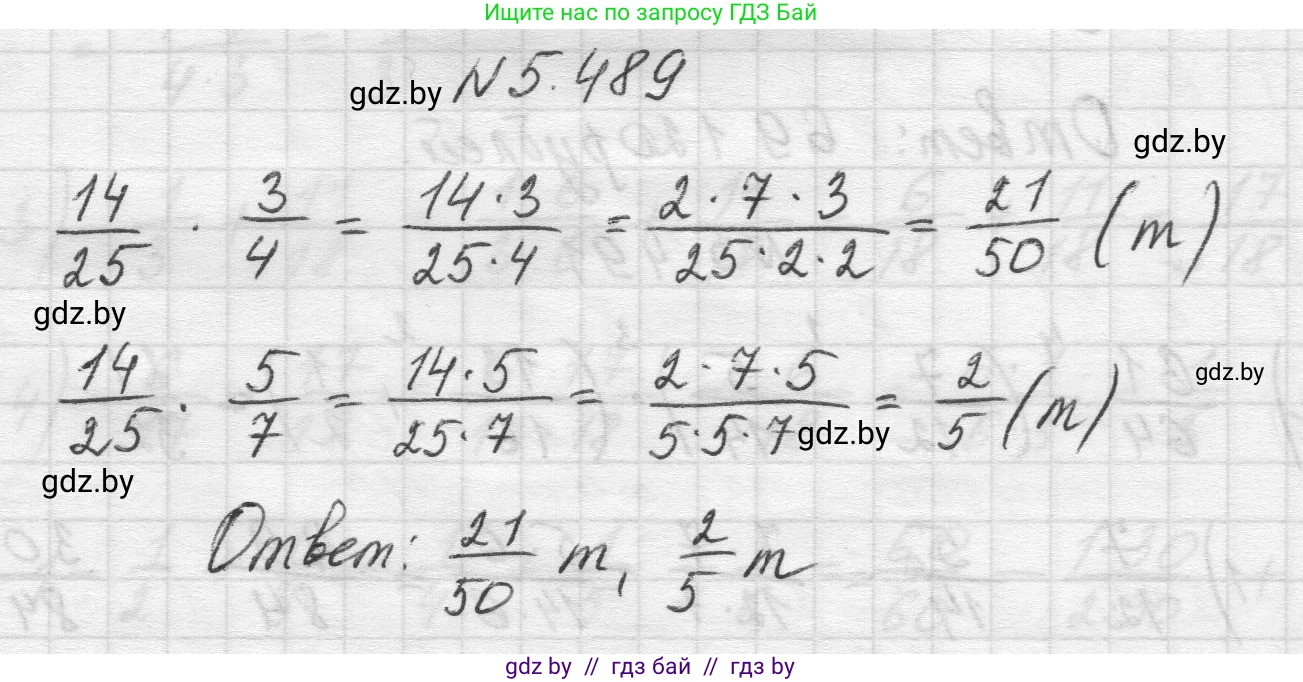 Ищите нас по запросу ГДЗ Бай
gdz.by N 5.489
gdz.by
14/25 · 3/4 = 14·3/25·4 = 2·7·3/25·2·2 = 21/50 (т)
gdz.by
14/25 · 5/7 = 14·5/25·7 = 2·7·5/5·5·7 = 2/5 (т)
gdz.by
gdz.by
gdz.by
Ответ: 21/50 т, 2/5 т
gdz.by // гдз бай // гдз by